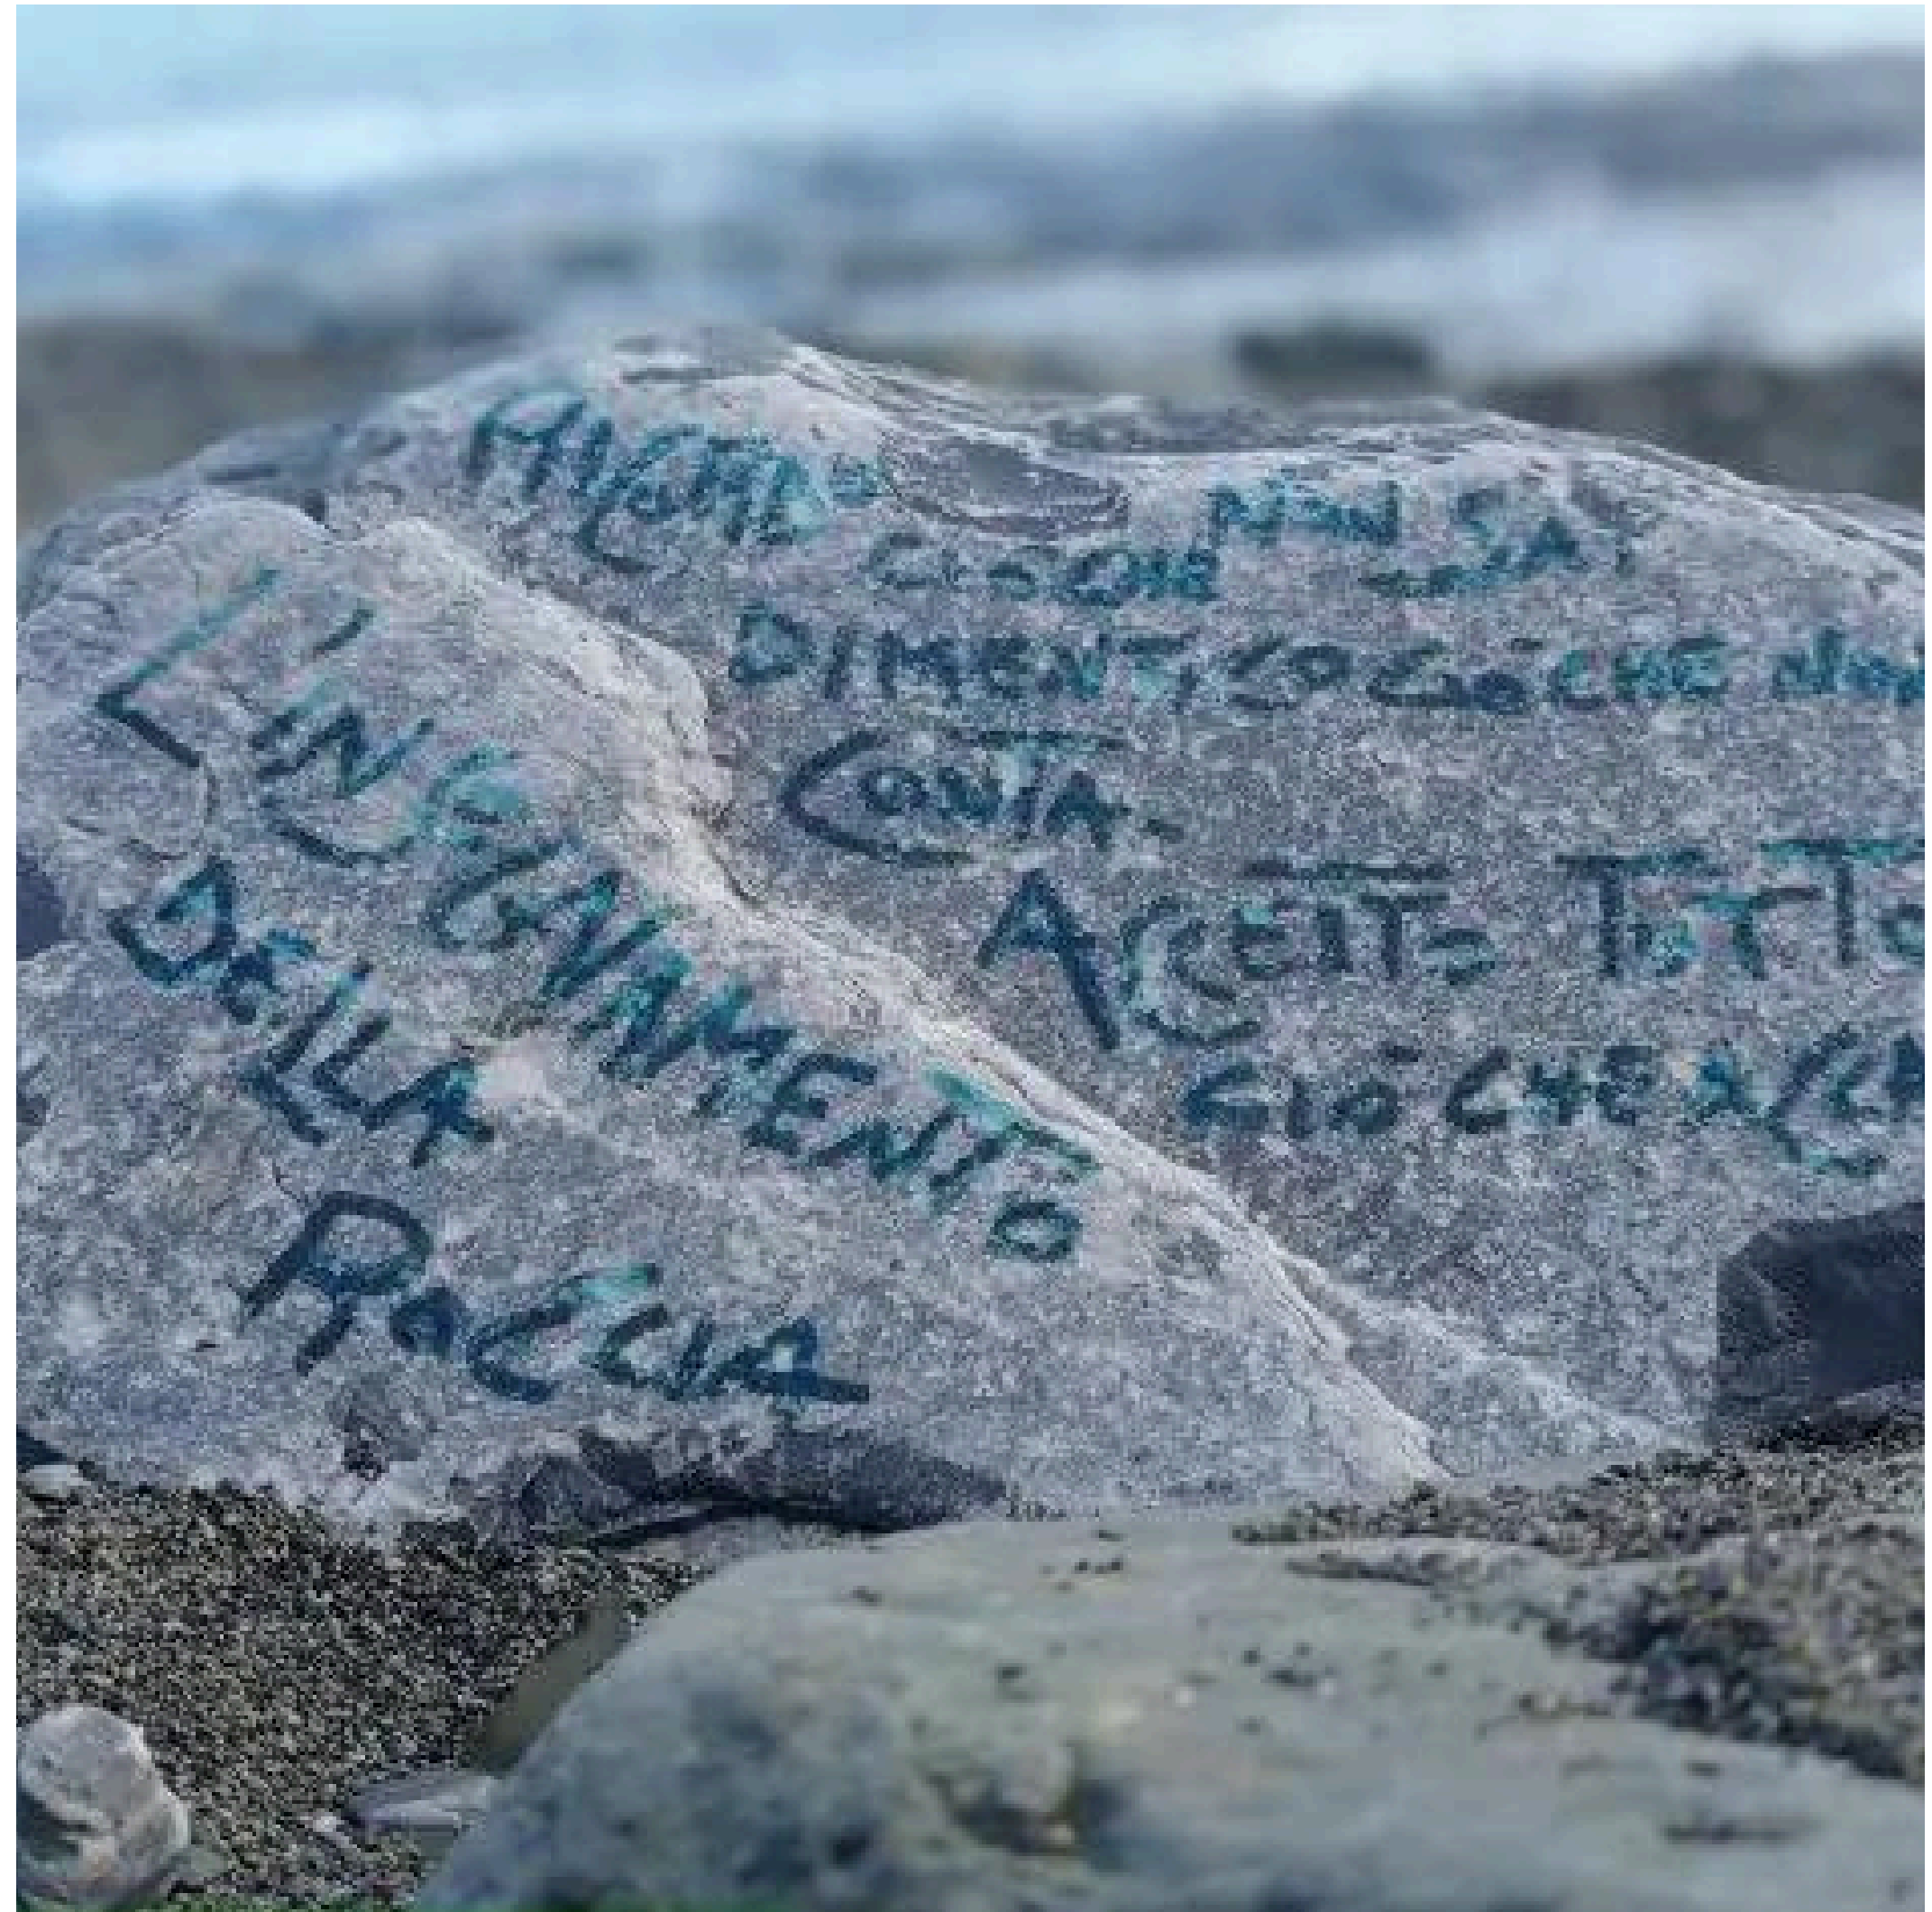 L'INSEGNAMENTO
DELLA
ROCCIA
CIÒ CHE NON SA,
DIMENTICO CIÒ CHE NON
CONTA.
ACCETTO TUTTO
CIÒ CHE